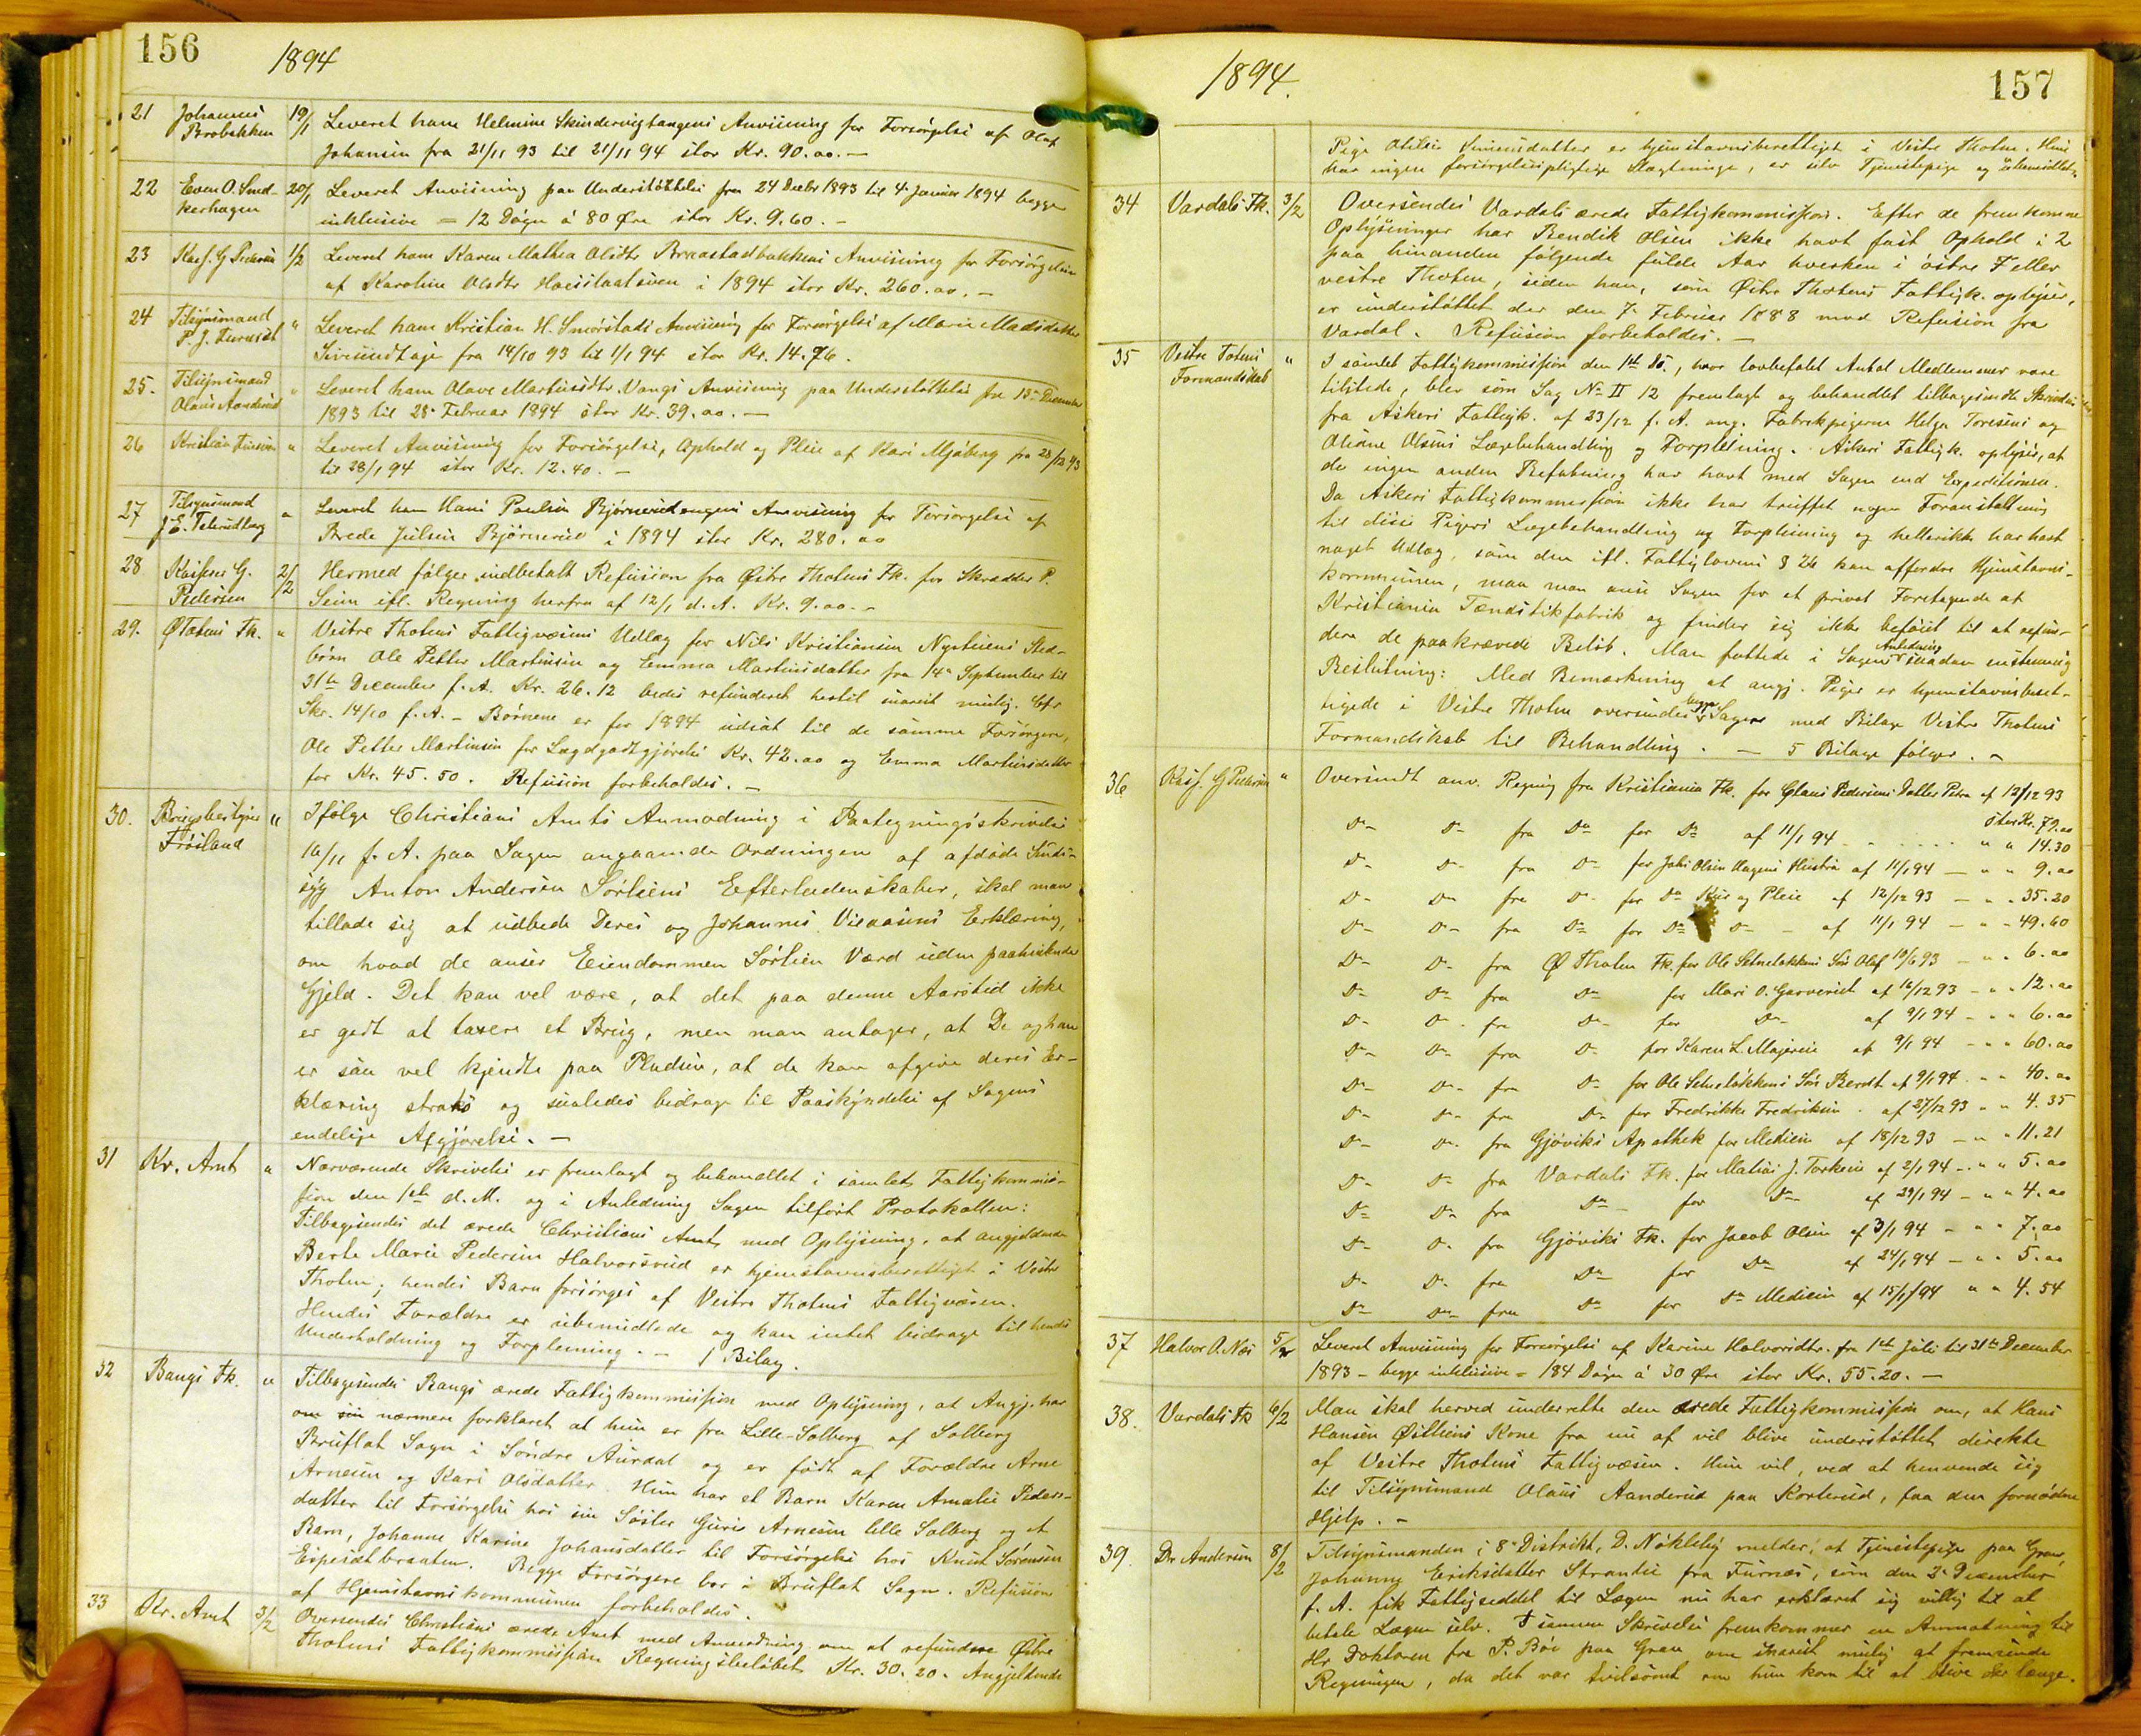 156
1894
21 Johannes 19/1 Leveret ham Helmine Skindervigtangens Anvisning for Forsörgelse af Olaf
Brobakken Johansen fra 21/11 93 til 21/11 94 stor Kr. 90.oo.-
22 Even O. 20/1 Leveret Anvisning paa Understöttelse fra 24 Decbr 1893 til 4. Januar 1894 begge
kerhagen inklusive = 12 Dögn á 80 Øre stor Kr. 9.60.-
23 Kasf. G Pedersen 1/2 Leveret ham Karen Mathea Olsdtr Anvisning for Forsörgelsen
af Karoline Olsdtr i 1894 stor Kr. 260.oo.-
24 Tilsynsmand " Leveret ham Kristian H. Smörstads Anvisning for Forsörgelse af Marie Madsdatter
P. J. fra 14/10 93 til 1/1 94 stor Kr. 14.76.
25. Tilsynsmand " Leveret ham Olave Martinsdtr. Vangs Anvisning paa Understöttelse fra 13de December
Olaus Aanderud 1893 til 28. Februar 1894 stor Kr. 39.oo.-
26 Kristian " Leveret Anvisning for Forsörgelse, Ophold og Pleie af Kari Mjöberg fra 28/12 93
til 28/1 94 stor Kr. 12.40.-
27 Tilsynsmand " Leveret ham Hans Paulsen Björnerudengens Anvisning for Forsorgelse af
J. E. Brede Julsen Björnerud i 1894 stor Kr. 280.oo
28 Kasserer G. 2/2 Hermed fölger indbetalt Refusion fra Östre Thotens Fk. for Skrædder P.
Pedersen Seim ifl. Regning herfra af 12/1 d. A. Kr. 9.oo.-
29. ØTotens Fk. " Vestre Thotens Fattigvæsens Udlæg for Nils Kristiansen Nystuens Sted-
börn Ole Petter Martinsen og Emma Martinsdatter fra 14de September til
31te December f. A. Kr. 26.12 bedes refunderet hertil snarest mulig. Cfr
Skr. 14/10 f. A. - Börnene er for 1894 udsat til de samme Forsörgere,
Ole Petter Martinsen for Lægdgodtgjörelse Kr. 42.oo og Emma Martinsdatter
for Kr. 45.50. Refusion forbeholdes.-
30. Brugsbestyrer " Ifölge Christians Amts Anmodning i Paategningsskrivelse
Fröiland 16/11 f. A. paa Sagen angaaende Ordningen af afdöde
Anton Andersen Sörliens Efterladenskaber, skal man
tillade sig at udbede Deres og Johannes Erklæring,
om hvad de anser Eiendommen Sörlien Værd uden paaheftende
Gjeld. Det kan vel være, at det paa denne Aarstid ikke
er godt at taxere et Brug, men man antager, at De og han
er saa vel kjendte paa Pladsen, at de kan afgive deres Er-
klæring straks og saaledes bidrage til Paaskyndelse af Sagens
endelige Afgjörelse.-
31 Kr. Amt " Nærværende Skrivelse er fremlagt og behandlet i samlet Fattigkommis-
sion den 1ste d. M. og i Anledning Sagen tilfört Protokollen:
Tilbagesendes det ærede Christians Amt med Oplysning, at angjeldende
Berte Marie Pedersen Halvorsrud er hjemstavnsberettiget i Vestre
Thoten; hendes Barn forsörges af Vestre Thotens Fattigvæsen.
Hendes Forældre er ubemidlede og kan intet bidrage til hendes
Underholdning og Forpleining.- 1 Bilag.
32 Bangs Fk. " Tilbagesendes Bangs ærede Fattigkommission med Oplysning, at Angj. har
om sin nærmere forklaret at hun er fra Lille-Solberg af Solberg
Bruflat Sogn i Söndre Aurdal og er födt af Forældre Arne
Arnesen og Kari Olsdatter. Hun har et Barn Karen Amalie Peders-
datter til Forsörgelse hos sin Söster Guri Arnesen lille Solberg og et
Barn, Johanne Karine Johansdatter til Forsörgelse hos Knut Sörensen
Espesetbraaten. Begge Forsörgere bor i Bruflat Sogn. Refusion
af Hjemstavnskommunen forbeholdes.
33 Kr. Amt 3/2 Oversendes Christians ærede Amt med Anmodning om at refundere Östre
Thotens Fattigkommission Regningsbelöbet Kr. 30.20. Angjeldende
1894.
157
Pige Otilie datter er hjemstavnsberettiget i Vestre Thoten. Hun
har ingen forsörgelsespligtige Slægtninge, er selv Tjenestepige og ubemidlet.
34 Vardals Fk. 3/2 Oversendes Vardals ærede Fattigkommission. Efter de fremkomne
Oplysninger har Bendik Olsen ikke havt fast Ophold i 2
paa hinanden fölgende fulde Aar hverken i östre eller
vestre Thoten, siden han, som Östre Thotens Fattigk. oplyser,
er understöttet der den 7. Februar 1888 mod Refusion fra
Vardal. Refusion forbeholdes.-
35 Vestre Totens " I samlet Fattigkommission den 1ste ds., hvor lovbefalet Antal Medlemmer vare
Formandskab tilstede, blev som Sag No II 12 fremlagt og behandlet tilbagesendt Skrivelse
fra Askers Fattigk. af 23/12 f. A. ang. Fabrikpigerne Helga Toresens og
Oliane Olsens Lægebehandling og Forpleining. Askers Fattigk. oplyser, at
de ingen anden Befatning har havt med Sagen end Expeditionen.
Da Askers Fattigkommission ikke har truffet nogen Foranstaltning
til disse Pigers Lægebehandling og Forpleining og hellerikke har havt
noget Udlæg, som den ifl. Fattiglovens § 24 kan affordre Hjemstavns-
kommunen, maa man anse Sagen for et privat Foretagende af
Kristiania Tændstikfabrik og finder sig ikke beföiet til at refun-
dere de paakrævede Belöb. Man fattede i Sagens Anledning saadan enstemmig
Beslutning: Med Bemærkning at angj. Piger er hjemstavnsberet-
tigede i Vestre Thoten oversendes begge Sagere med Bilage Vestre Thotens
Formandskab til Behandling.- 5 Bilage fölger.-
36 Kasf. G Pedersen " Oversendt anv. Regning fra Kristiania Fk. for Claus Pedersens Datter Petra af 12/12 93
stor Kr. 79.oo
Do Do fra Do for Do af 11/1 94 " " 14.30
Do Do fra Do for Johs Olsen Hagens Hustru af 11/1 94 - " " 9.oo
Do Do fra Do for Do Kur og Pleie af 12/12 93 - " " 35.20
Do Do fra Do for Do Do - af 11/1 94 - " " 49.60
Do Do fra Ø Thoten Fk. for Ole Setnelökkens Sön Olaf 10/6 93 - " " 6.oo
Do Do fra Do for Mari O. Garverud af 16/12 93 - " " 12.oo
Do Do fra Do for Do af 9/1 94 - " " 6.oo
Do Do fra Do for Karen L. Majereie af 9/1 94 - " " 60.oo
Do Do fra Do for Ole Setnelökkens Sön Berndt af 9/1 94 " " 40.oo
Do Do fra Do for Fredrikke Fredriksen af 27/12 93 " " 4.35
Do Do fra Gjöviks Apothek for Medicin af 18/12 93 - " " 11.21
Do Do fra Vardals Fk. for Matias J. af 2/1 94 - " " 5.oo
Do Do fra Do for Do af 29/1 94 - " " 4.oo
Do Do fra Gjöviks Fk. for Jacob Olsen af 3/1 94 - " " 7.oo
Do Do fra Do for Do af 24/1 94 - " " 5.oo
Do Do fra Do for Do Medicin af 15/1/94 " " 4.54
37 Halvor A. Næs 5/2 Leveret Anvisning for Forsörgelse af Karine Halvorsdtr. fra 1ste Juli til 31te December
1893 - begge inklusive = 184 Dögn á 30 Øre stor Kr. 55.20.-
38. Vardals Fk 6/2 Man skal herved underrette den ærede Fattigkommission om, at Hans
Hansen Östliens Kone fra nu af vil blive understöttet direkte
af Vestre Thotens Fattigvæsen. Hun vil, ved at henvende sig
til Tilsynsmand Olaus Aanderud paa Korterud, faa den fornödne
Hjelp.-
39. Dr Andersen 8/2 Tilsynsmanden i 8de Distrikt, D. Nökleby melder, at Tjenestepige paa Gran,
Johanne Eriksdatter Strande fra Furnæs, som den 2de December
f. A. fik Fattigseddel til Lægen nu har erklæret sig villig til at
betale Lægen selv. I samme Skrivelse fremkommer en Anmodning til
Hr Doktoren fra P. Böe paa Gran om snarest mulig at fremsende
Regningen, da det var tvilsomt om hun kom til at blive der længe.